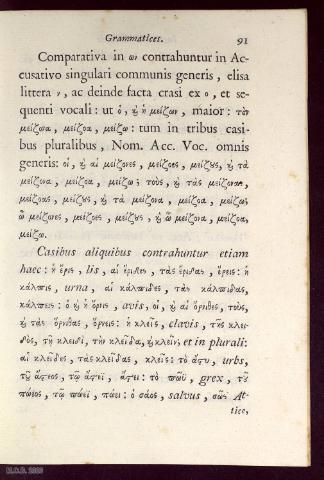 Grammatices. 91
Comparativa in ων contrahuntur in Ac-
cusativo singulari communis generis, elisa
littera ν, ac deinde facta crasi ex ο, et se-
quenti vocali: ut ὁ, ϗ ἡ μείζων, maior: τὸν
μείζονα, μείζοα, μείζω: tum in tribus casi-
bus pluralibus, Nom. Acc. Voc. omnis
generis: οἱ, ϗ αἱ μείζονες, μείζοες, μείζους, ϗ τὰ
μείζονα, μείζοα, μείζω; τοὺς, ϗ τὰς μείζονας,
μείζοας, μείζους, ϗ τὰ μείζονα, μείζοα, μείζω;
ὦ μείζονες, μείζοες, μείζους, ϗ ὦ μείζονα, μείζοα,
μείζω.
Casibus aliquibus contrahuntur etiam
haec: ἡ ἔρις, lis, αἱ ἔριδες, τὰς ἔριδας, ἔρεις: ἡ
κάλπις, urna, αἱ κάλπιδες, τὰς κάλπιδας,
κάλπεις: ὁ ϗ ἡ ὄρνις, avis, οἱ, ϗ αἱ ὄρνιθες, τοὺς,
ϗ τὰς ὄρνιθας, ὄρνεις: ἡ κλεὶς, clavis, τῆς κλει-
δὸς, τῇ κλειδὶ, τὴν κλεῖδα, ϗ κλεῖν; et in plurali:
αἱ κλεῖδες, τὰς κλεῖδας, κλεῖς: τὸ ἄστυ, urbs,
τοῦ ἄστεος, τῷ ἄστεϊ, ἄστει: τὸ πῶϋ, grex, τοῦ
πώεος, τῷ πώεϊ, πώει: ὁ σάος, salvus, σῶς At-
tice,
H.O.B. 2009